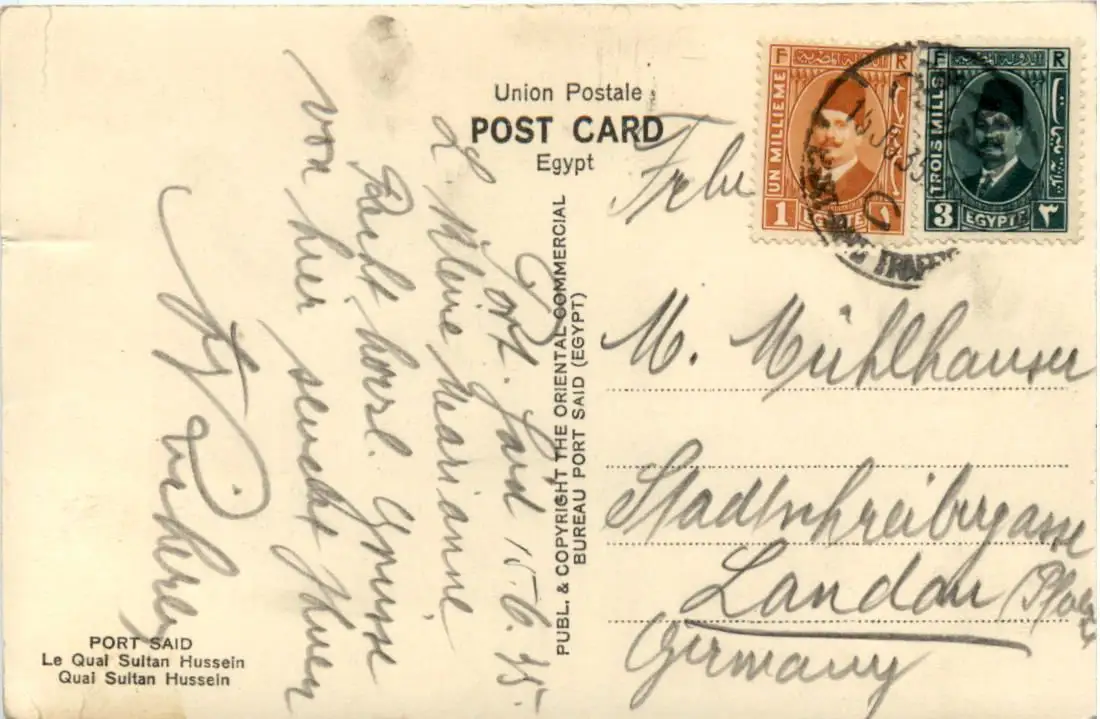 Union Postale
POST CARD
Egypt
F R
UN MILLIEME
1 EGYPTE ١
F R
TROIS MILLS
3 EGYPTE ٣
TRAFFIC
Port. Said 15.6.35.
L. Kleine Marianne
Recht herzl. Grüsse
von hier sendet Ihnen
PUBL. & COPYRIGHT THE ORIENTAL COMMERCIAL
BUREAU PORT SAID (EGYPT)
M. Mühlhauser
Stadtschreibergasse
Landau (Pfalz
Germany
PORT SAID
Le Quai Sultan Hussein
Quai Sultan Hussein